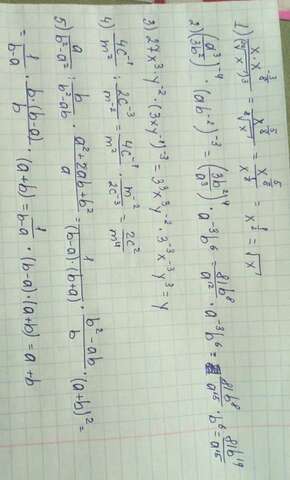 1) x·x^(-3/8) / = x^(5/8) / ⁸√x = x^(5/8) / x^(1/8) = x^(1/2) = √x
2) (a³/3b²)⁻⁴ · (ab⁻²)⁻³ = (3b²/a³)⁴ · a⁻³b⁶ = 81b⁸/a¹² · a⁻³b⁶ = 81b⁸/a¹⁵ · b⁶ = 81b¹⁴/a¹⁵
3) 27x³·y⁻²·(3xy⁻¹)⁻³ = 3³x³y⁻²·3⁻³x⁻³y³ = y
4) 4c⁻¹/m² : 2c⁻³/m⁻² = 4c⁻¹/m² · m⁻²/2c⁻³ = 2c²/m⁴
5) a/(b²-a²) : b/(b²-ab) · (a²+2ab+b²)/a = 1/((b-a)·(b+a)) · (b²-ab)/b · (a+b)² =
= 1/(b-a) · b·(b-a)/b · (a+b) = 1/(b-a) · (b-a)·(a+b) = a+b